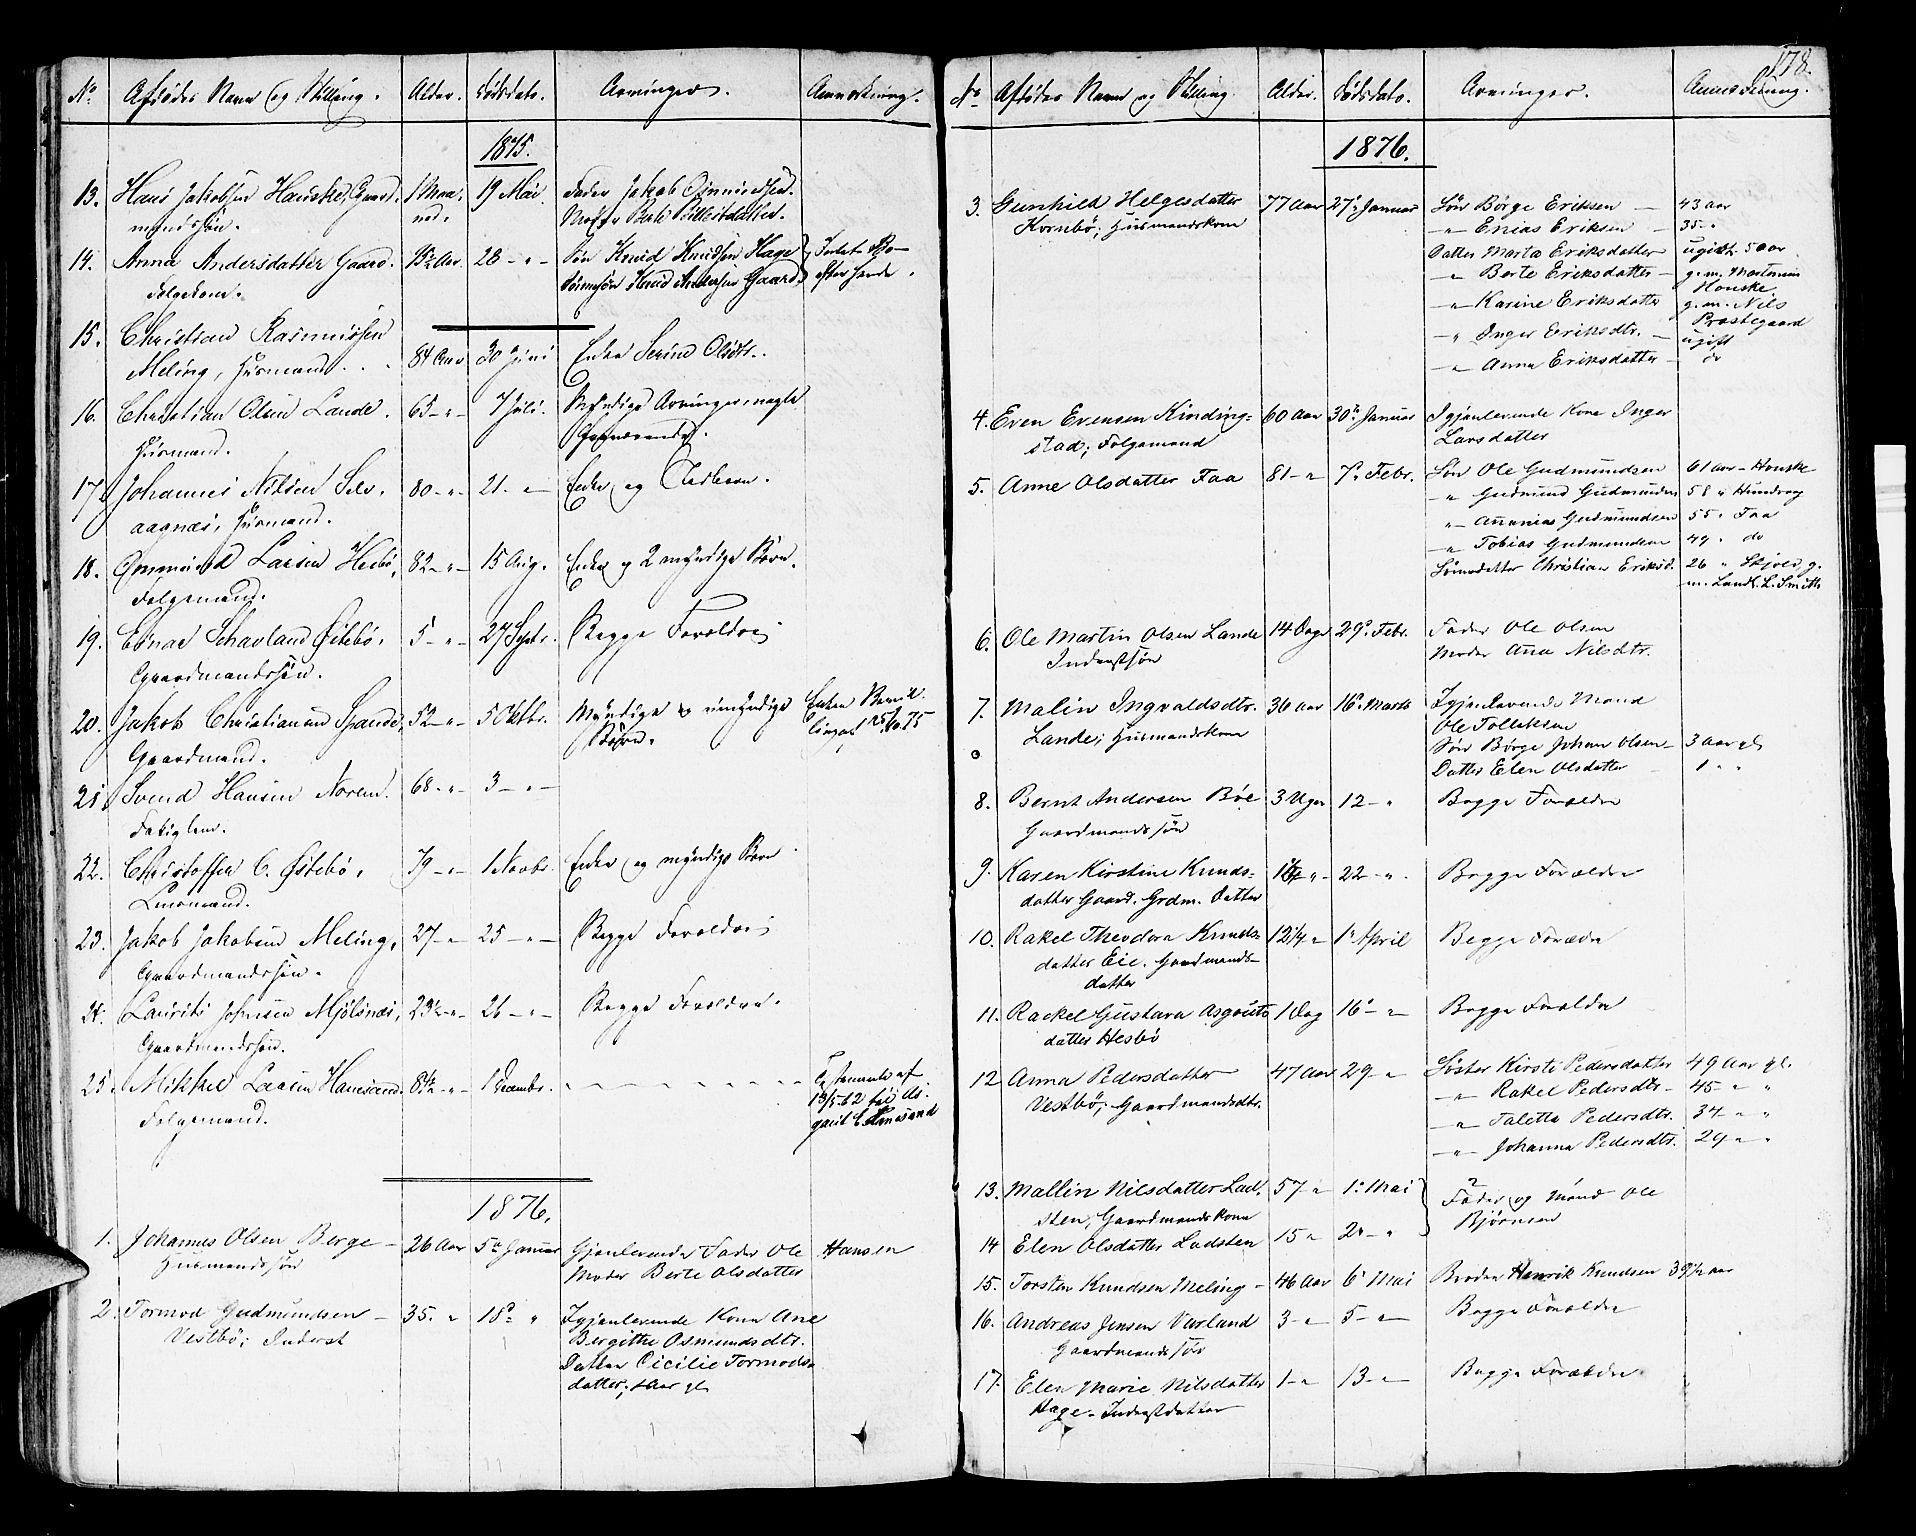 No. Afdødes Navn og Stilling. Alder. Dødsdato. Arvinger. Anmærkning.
1875.
13. Hans Jakobsen Hauske, Gaard- 1 Maa- 19 Mai Fader Jakob
mandssøn. ned. Moder
14. Anna Andersdatter Gaard. 28 - " - Søn Knud Knudsen Hage Intet Bo
Folgekone. Sønnesøn Knud Andersen Gaard efter hende.
15. Christian Rasmussen
Meling, Husmand. 84 Aar 30 Juni Enke Serine Olsdtr.
16. Christian Olsen Lande. 65 - " - 7 Juli. Myndige Arvinger, nogle
Husmand. fraværende.
17. Johannes Nilsen Selv- 80 - " - 21 - " - Enke og
aagnæs, Husmand.
18. Ommund Larsen Hesbø, 82 - " - 15 Aug. Enke og 2 myndige Børn.
Folgemand.
19. Einar Schavland Østebø, 5 - " - 27 Septr. Begge Forældre
Gaardmandssøn.
20. Jakob Christiansen Spande, 52 - " - 5 Oktbr. Myndige & umyndige Enken Bevil-
Gaardmand. Børn. linget 75
21. Svend Hansen Norem. 68 - " - 3 - " -
Fattiglem.
22. Christoffer C. Østebø, 79 - " - 1 Novbr. Enke og myndige Børn
Lensmand.
23. Jakob Jakobsen Meling, 27 - " 25 - " - Begge Forældre
Gaardmandssøn.
24. Laurits Johnsen Mjølsnæs, 23½ - " - 26 - " - Begge Forældre.
Gaardmandssøn.
25. Mikkel Larsen Hanasand 84½ - " - 1 Decembr. - - - - - - - Testamente af
Folgemand. 13/5 62 til As-
gaut E. Hanasand
1876.
1. Johannes Olsen Berge - 26 Aar 5te Januar Gjenlevende Fader Ole Hansen
Husmandssøn Moder Berte Olsdatter
2. Tormod Gudmundsen - 35 - " 18de " Igjenlevende Kone Ane
Vestbø; Inderst Bergithe Osmundsdtr.
Datter Cicilie Tormods-
datter; Aar gl.
178.
No. Afdødes Navn og Stilling. Alder. Dødsdato. Arvinger. Anmærkning.
1876.
3. Gunhild Helgesdatter 77 Aar 27de Januar Søn Børge Eriksen - 43 aar
Kornbø; Husmandskone - " - Enias Eriksen - 35 - "
Datter Marta Eriksdatter ugift. 50 aar
- " - Berte Eriksdatter - g.m. Martinius
Hauske
- " - Karine Eriksdatter g.m. Nils
Prestegaard
- " - Inger Eriksdtr. - ugift
- " - Anna Eriksdatter - do
4. Even Evensen Kinding- 60 Aar 30te Januar Igjenlevende Kone Inger
stad; Folgemand Larsdatter
5. Anne Olsdatter Faa 81 - " 7de Febr. Søn Ole Gudmundsen 61 aar - Hauske
- " - Gudmund Gudmundsen 58 " Hundvaag
" - Ananias Gudmundsen 55 " Faa
- " - Tobias Gudmundsen 49 " do
Sønnedatter Christiane Eriksd. 26 " Skjold g.
m. Landh. L. Smith
6. Ole Martin Olsen Lande 14 Dage 29de Febr. Fader Ole Olsen
Inderstsøn Moder Ana Nilsdtr.
7. Malin Ingvaldsdtr. 36 aar 16de Marts Igjenlevende Mand
Lande; Husmandskone Ole Tollaksen
Søn Børge Johan Olsen - 3 aar gl.
Datter Elen Olsdatter - 1 " "
8. Bernt Andersen Bøe 3 Uger 12 - " Begge Forældre
Gaardmandssøn
9. Karen Kirstine Knuds- " - 22 - " - Begge Forældre
datter Gaard. Grdm. Datter
10. Rakel Theodora Knuds- 12¼ " 1ste April Begge Forældre
datter Eie. Gaardmands-
datter
11. Rackel Gustava Asgauts- 1 Dag 16de - " Begge Forældre
datter Hesbø
12 Anna Pedersdatter 47 Aar 29 - " Søster Kirsti Pedersdatter 49 Aar gl.
Vestbø; Gaardmandsdtr. - " - Rakel Pedersdtr. - 45 - " "
- " - Taletta Pedersdtr. 34 - " "
- " - Johanna Pedersdtr. 29 - " "
13. Mallin Nilsdatter Lad- 57 - " 1ste Mai Fader og Mand Ole
sten, Gaardmandskone Bjørnsen
14 Elen Olsdatter Ladsten 15 - " 2n - "
15. Torsten Knudsen Meling - 46 Aar 6te Mai Broder Henrik Knudsen 39½ aar
16. Andreas Jensen Varland 3 - " 5 - " Begge Forældre
Gaardmandssøn
17. Elen Marie Nilsdatter 1 - " 13 - " Begge Forældre
Hage - Inderstdatter